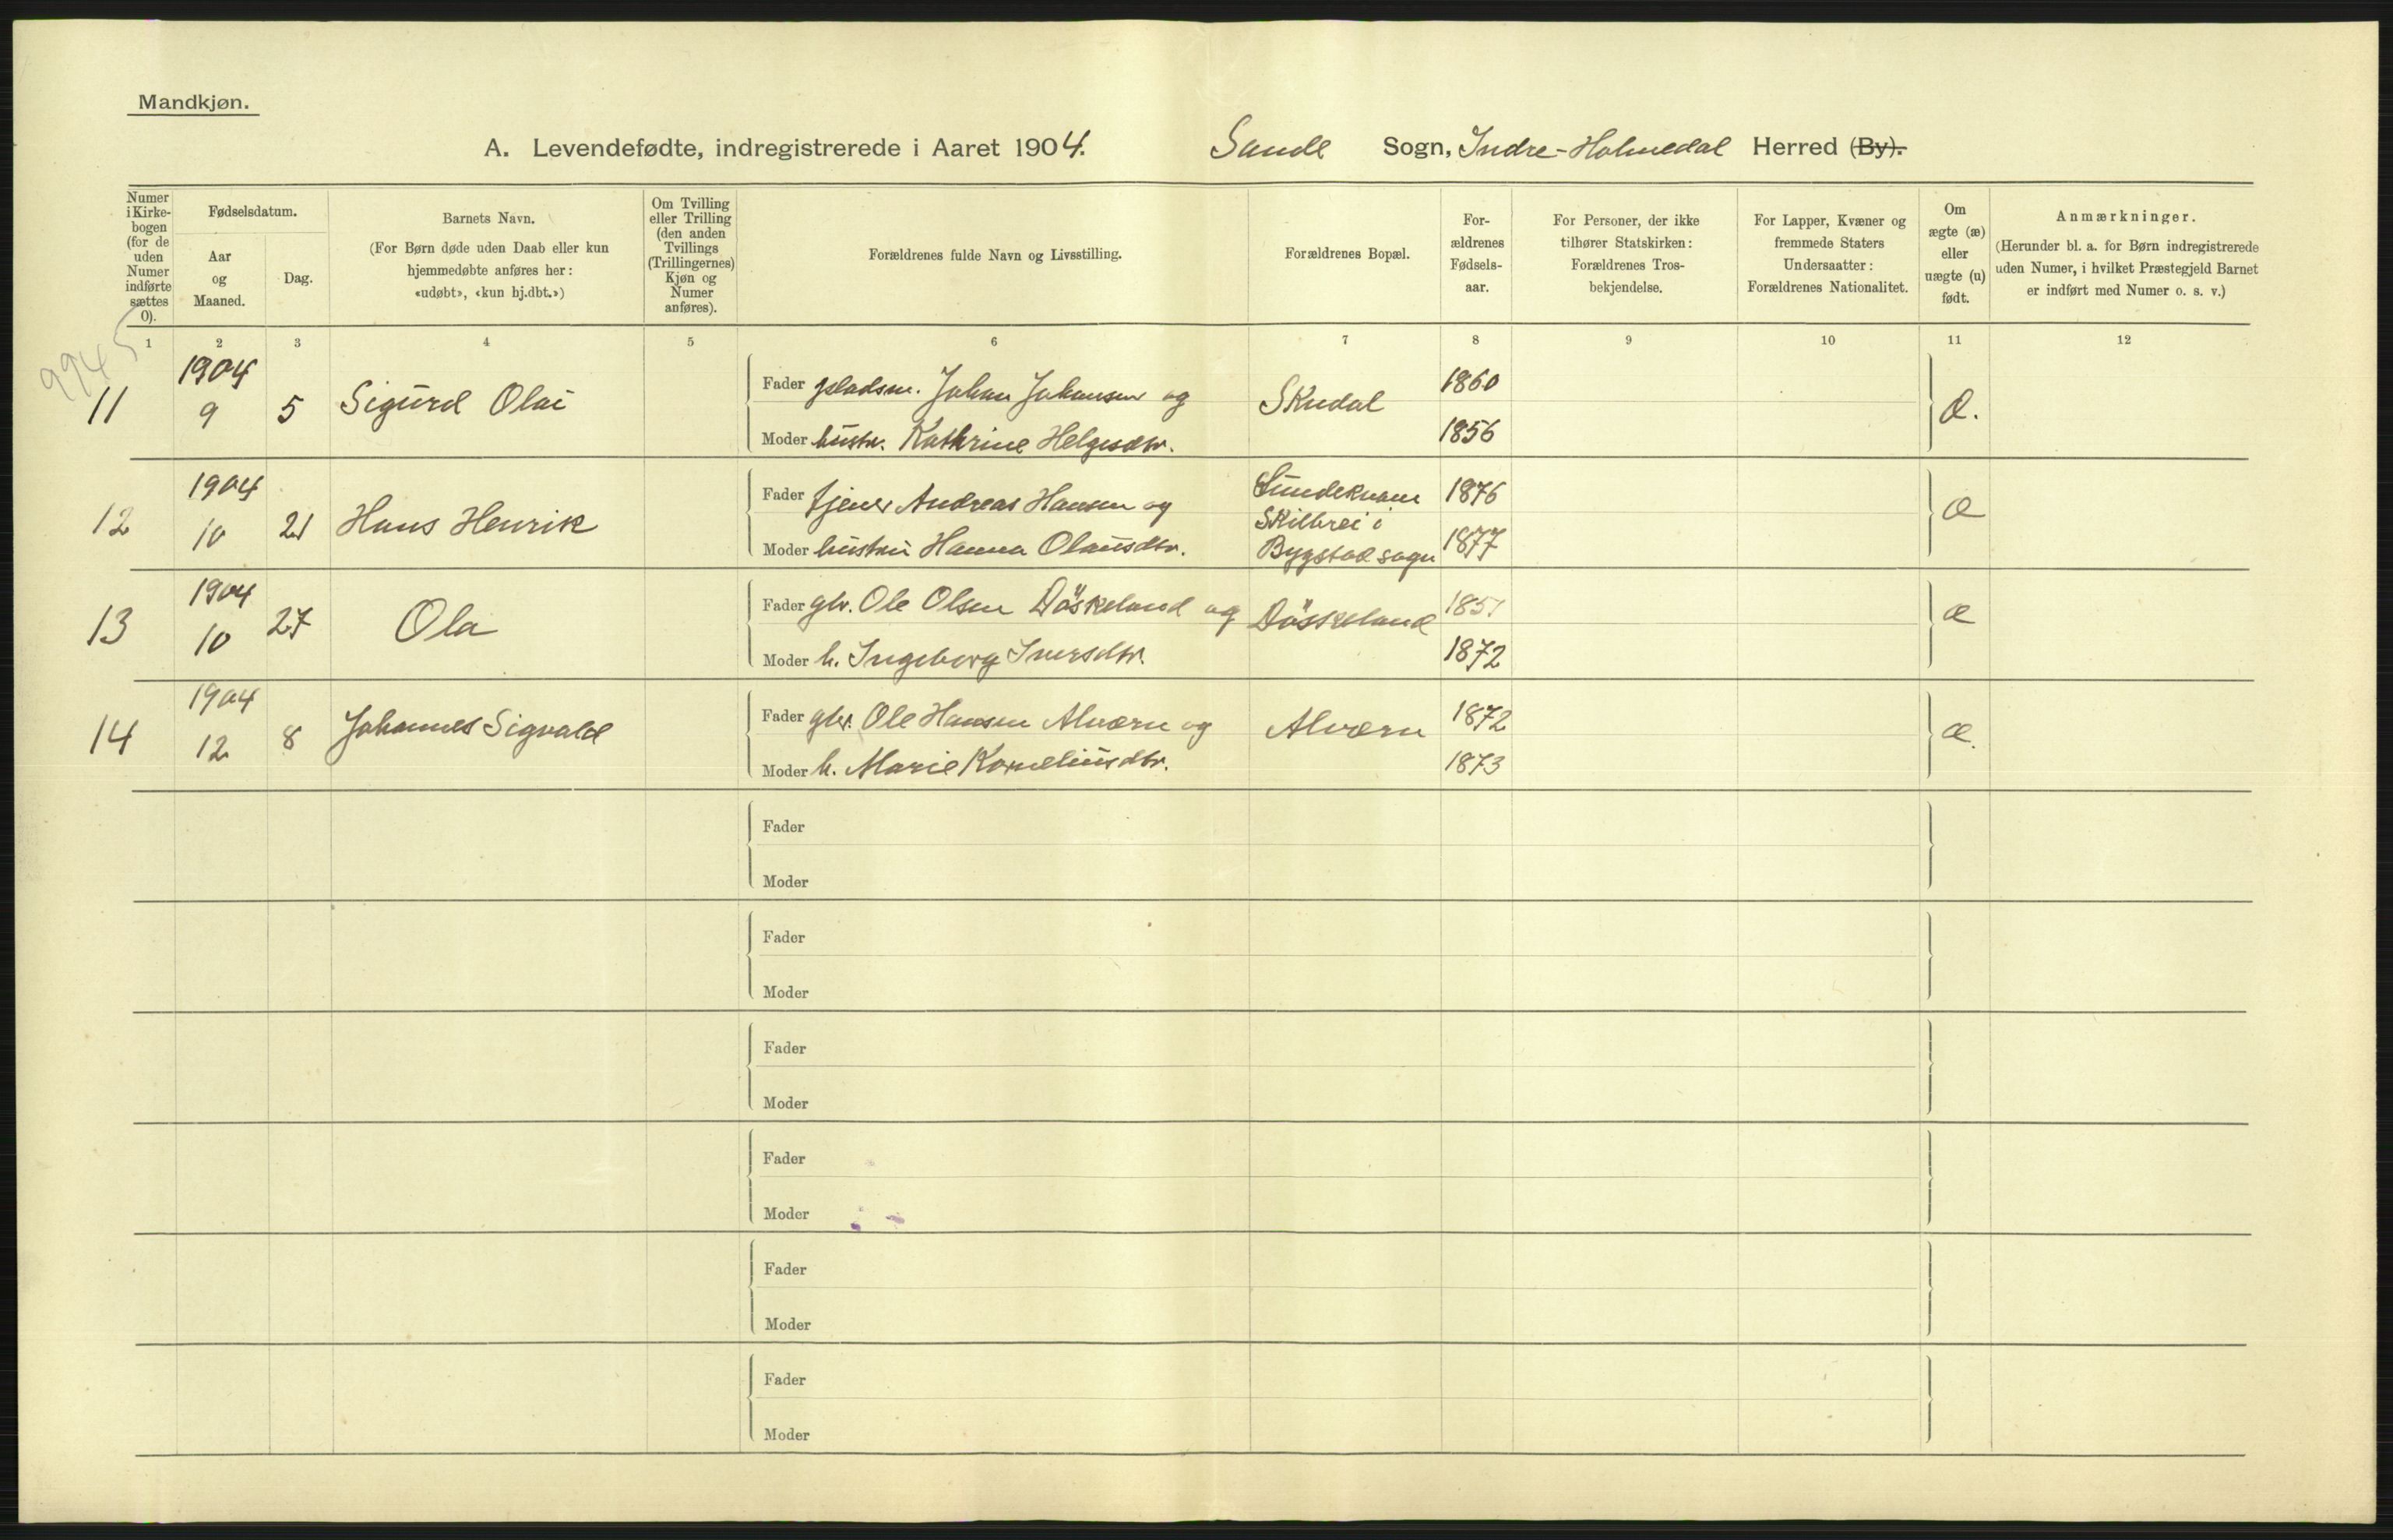 Mandkjøn.
A. Levendefødte, indregistrerede i Aaret 1904. Sande Sogn, Indre-Holmedal Herred (By).
Numer i Kirke- bogen (for de uden Numer indførte sættes 0).
Fødselsdatum.
Aar og Maaned.
Dag.
Barnets Navn.
(For Børn døde uden Daab eller kun
hjemmedøbte anføres her:
«udøbt», «kun hj.dbt.»)
Om Tvilling
eller Trilling
(den anden
Tvillings
(Trillingernes)
Kjøn og
Numer
anføres).
Forældrenes fulde Navn og Livsstilling.
Forældrenes Bopæl.
For-
ældrenes
Fødsels-
aar.
For Personer, der ikke
tilhører Statskirken:
Forældrenes Tros-
bekjendelse.
For Lapper, Kvæner og
fremmede Staters
Undersaatter:
Forældrenes Nationalitet.
Om
ægte (æ)
eller
uægte (u)
født.
Anmærkninger.
(Herunder bl. a. for Børn indregistrerede
uden Numer, i hvilket Præstegjeld Barnet
er indført med Numer o. s. v.)
1 2 3 4 5 6 7 8 9 10 11 12
9945
11 1904 9 5 Sigurd Olai
Fader pladsm. Johan Johansen og Skudal 1860
Moder hustr. Kathrine Helgesdtr. 1856
æ.
12 1904 10 21 Hans Henrik
Fader tjener Andreas Hansen og Sundekvam 1876
Skilbrei i
Moder hustru Hanna Olausdtr. Bygstad sogn 1877
æ
13 1904 10 27 Ola
Fader gbr. Ole Olsen Döskeland og Döskeland 1851
Moder h. Ingeborg Iversdtr. 1872
æ
14 1904 12 8 Johannes Sigvald
Fader gbr. Ole Hansen Alværn og Alværn 1872
Moder h. Marie Korneliusdtr. 1873
æ.
Fader
Moder
Fader
Moder
Fader
Moder
Fader
Moder
Fader
Moder
Fader
Moder